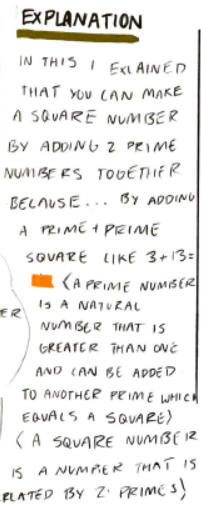 EXPLANATION
IN THIS I EXLAINED
THAT YOU CAN MAKE
A SQUARE NUMBER
BY ADDING 2 PRIME
NUMBERS TOGETHER
BECAUSE... BY ADDING
A PRIME + PRIME
SQUARE LIKE 3+13=
(A PRIME NUMBER
ER
IS A NATURAL
NUMBER THAT IS
GREATER THAN ONE
AND CAN BE ADDED
TO ANOTHER PRIME WHICH
EQUALS A SQUARE)
(A SQUARE NUMBER
IS A NUMBER THAT IS
RLATED BY 2 PRIMES)